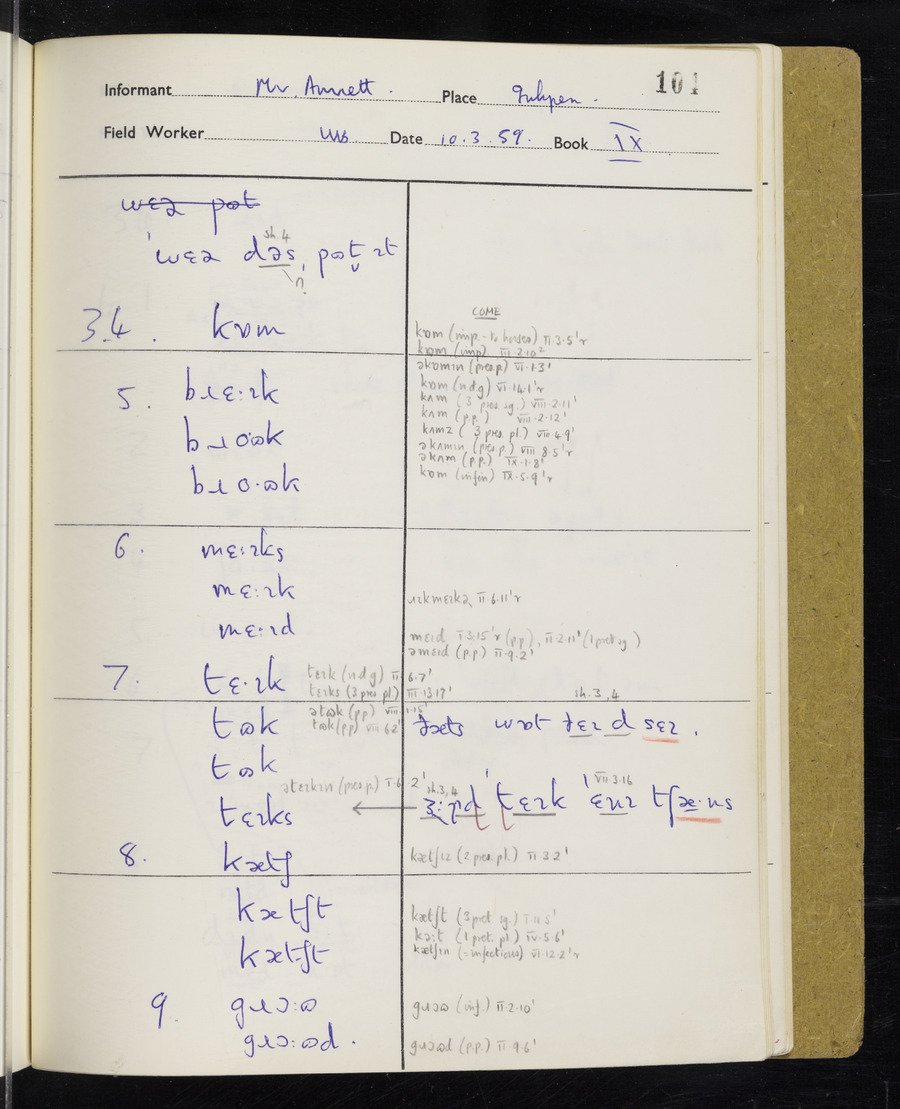 101
Informant Mr. Annett. Place Inkpen.
Field Worker Date 10.3.59. Book IX
wɛə pɒt
sh.4
ˈwɛə dəs pɒt ɪt
COME
3.4. kɒm
kɒm (imp. - to horses) II.3.5'r
kɒm (imp) III.2.10²
əkɒmɪn (pres.p.) VI.1.3'
5. bɹɛ:ɪk
kɒm (n.d.g) VI.14.1'r
kʌm (3 pres. sg.) VIII.2.11'
kʌm (p.p.) VIII.2.12'
bɹoʊk
kʌmz (3 pres. pl.) VIII.4.9'
əkʌmɪn (pres p.) VIII 8.5'r
əkʌm (p.p.) IX.1.8'
kɒm (infin) IX.5.9'r
bɹo·ʊk
6. mɛ:ɪks
mɛ:ɪk
mɛ:ɪd
mɛɪd I.3.15'r (p.p), II.2.11' (1 pret sg)
əmɛɪd (p.p.) II.9.2'
7. tɛ·ɪk
tɛɪk (n.d.g) II.6.7'
tɛɪks (3 pres. pl.) III.13.17'
sh.3,4
ətʊk (pp) VIII.1.15'
tʊk (pp) VIII 6.2'
tʊk
ðæts wɒt ðɛɪ d sɛɪ.
tʊk
ətɛɪkɪn (pres.p.) I.6.2'
sh.3,4
VII.3.16
tɛɪks
8. kætʃ
kætʃɪz (2 pres. pl.) III 3.2'
kætʃt
kætʃt (3 pret sg.) I.11.5'
kɔ:t (1 pret. pl) IV.5.6'
kætʃt
kætʃɪn (=infectious) VI.12.2'r
9. gɹɔ:ʊ
gɹɔʊ (inf.) II.2.10'
gɹɔ:ʊd.
gɹɔʊd (p.p.) II 9.6'